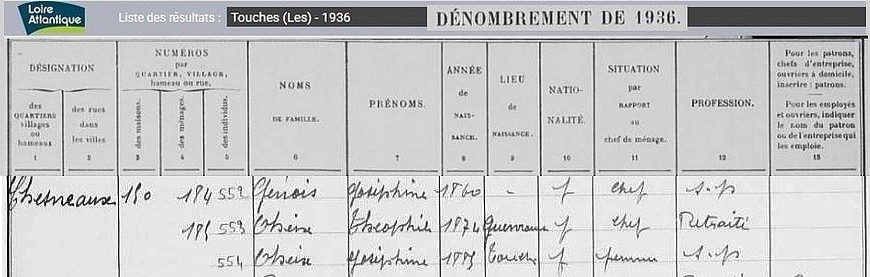 Loire Atlantique
Liste des résultats : Touches (Les) - 1936
DÉNOMBREMENT DE 1936.
DÉSIGNATION
des QUARTIERS villages ou hameaux
1
des rues dans les villes
2
NUMÉROS par QUARTIER, VILLAGE, hameau ou rue.
des maisons.
3
des ménages.
4
des individus.
5
NOMS DE FAMILLE.
6
PRÉNOMS.
7
ANNÉE de NAIS- SANCE.
8
LIEU de NAISSANCE.
9
NATIO- NALITÉ.
10
SITUATION par RAPPORT au chef de ménage.
11
PROFESSION.
12
Pour les patrons, chefs d'entreprise, ouvriers à domicile, inscrire : patrons.
Pour les employés et ouvriers, indiquer le nom du patron ou de l'entreprise qui les emploie.
13
150 184 552 Joséphine 1860 - f chef s.p
185 553 Théophile 1874 f chef Retraité
554 Joséphine f femme s.p